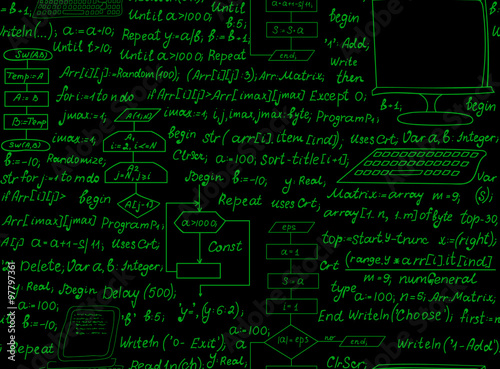 :=b- Until a>1000; Until a:=a++-s/11; begin
b:=b-1; b:5; S:=S·a '1'- Add;
Writeln(...); a:=a-10; Repeat y:=a/b, b:=b-1; Write
Until t>10; Until a>1000; Repeat end; then
Sw(A,B) Arr[i][j]:=Random(100); (Arr[i][j]:3); Arr.Matrix;
Temp:=A for i:=1 to n do if Arr[i][j]>Arr[imax][jmax] Except 0;
A:=B jmax:=1; A[1,n] imax:=1; i,j,imax,jmax:byte; Program P1; b-1; begin
B:=Temp imax:=1; A1 i=2...≤N begin str(arr[i].item[ind]), Uses Crt; Var a,b: Integer;
Sw(A,B) ClrScr; a:=100; sort-title[i+1];
b:=-10; Randomize; A2 j=N...i>1
str for j:=1 to m do Begin b:=-10; y: Real; Var
if Arr[i][j]> begin A[j-1] Repeat Uses Crt; Matrix:=array m=9; (S);
Arr[imax][jmax] Program P1; a>1000; array[1..n, 1..m] of byte top-30
A[j] a:=a++-s/11; Uses Crt; Const eps top:=start y-trunc x:=(right);
a=1 Crt (range, y*arr[i].it[ind]
Delete; Var a,b: Integer; S:=a m=9, numGeneral
y: Real; Begin Delay(500); type a:=100; n=6; Arr.Matrix;
a:=100; 'y=', (y:6:2); i=1 End Writeln('Choose'); first:=n
b:=-10; '*' b:5; a:=100;
Repeat Writeln('0- Exit'); |a|=eps no end; Writeln('1-Add');
a:=100; Readln(ch); y: Real; ClrScr;
Adobe Stock | #97797361